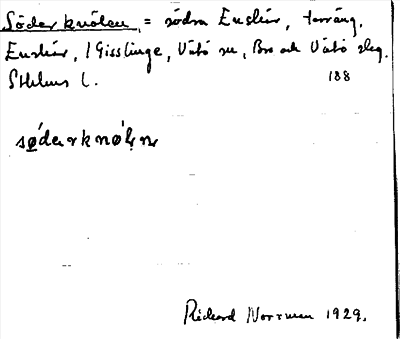 Söderknölen, = södra Enskär, terräng,
Enskär, / Gisslinge, Vätö sn, Bro och Vätö slg.
Sthlms l. 188
sø̱´derknø`ḷṇ
Rickard Norrman 1929.